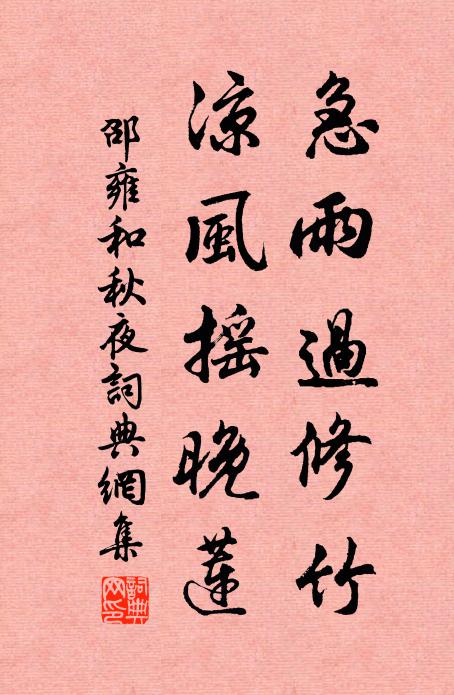 急雨過修竹
涼風搖晚蓮
邵雍和秋夜詞典網集
詞典
網印